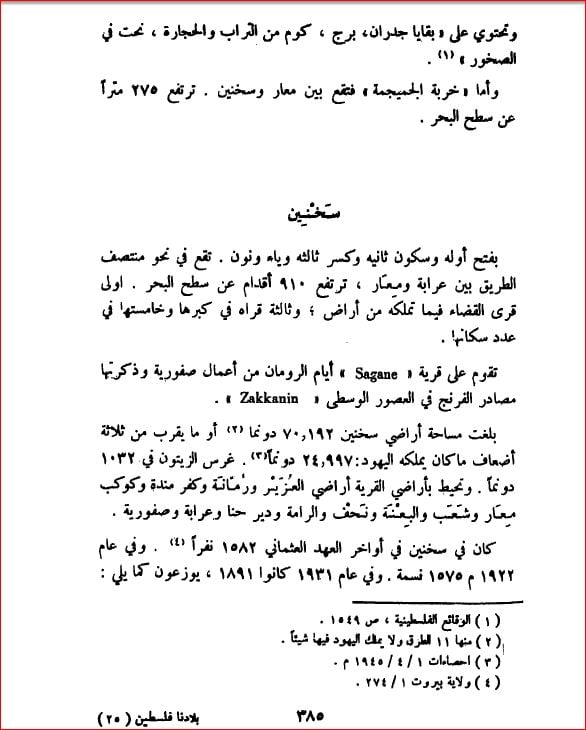 وتحتوي على « بقايا جدران، برج ، كوم من التراب والحجارة ، نحت في
الصخور » (١) .
وأما « خربة الجميجمة » فتقع بين معار وسخنين . ترتفع ٢٧٥ متراً
عن سطح البحر .
سَخْنِين
بفتح أوله وسكون ثانيه وكسر ثالثه وياء ونون . تقع في نحو منتصف
الطريق بين عرابة ومِعَار ، ترتفع ٩١٠ أقدام عن سطح البحر . اولى
قرى القضاء فيما تملكه من أراض ؛ وثالثة قراه في كبرها وخامستها في
عدد سكانها .
تقوم على قرية « Sagane » أيام الرومان من أعمال صفورية وذكرتها
مصادر الفرنج في العصور الوسطى « Zakkanin » .
بلغت مساحة أراضي سخنين ٧٠,١٩٢ دونما (٢) أو ما يقرب من ثلاثة
أضعاف ماكان يملكه اليهود: ٢٤,٩٩٧ دونماً(٣) . غرس الزيتون في ١٠٣٢
دونماً . وتحيط بأراضي القرية أراضي العُزَيْر ورُمّانَة وكفر مندة وكوكب
مِعَار وشَعَب والبِعْنَة ونَحْف والرامة ودير حنا وعرابة وصفورية .
كان في سخنين في أواخر العهد العثماني ١٥٨٢ نفراً (٤) . وفي عام
١٩٢٢ م ١٥٧٥ نسمة . وفي عام ١٩٣١ كانوا ١٨٩١ ، يوزعون كما يلي :
(١) الوقائع الفلسطينية ، ص ١٥٤٩ .
(٢) منها ١١ الطرق ولا يملك اليهود فيها شيئاً .
(٣) احصاءات ١ / ٤ / ١٩٤٥ م .
(٤) ولاية بيروت ١ / ٢٧٤ .
٣٨٥
بلادنا فلسطين (٢٥)